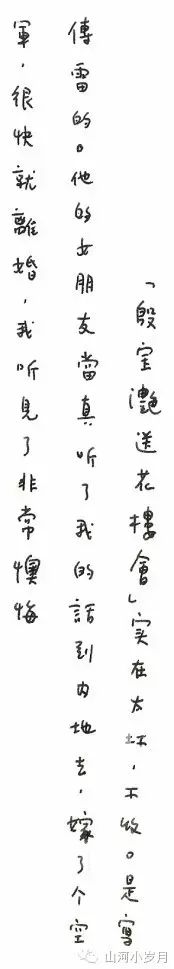 「殷宝灔送花樓會」实在太坏，不收。是寫
傅雷的。他的女朋友當真听了我的話到内地去，嫁了个空
軍，很快就離婚，我听見了非常懊悔
山河小岁月